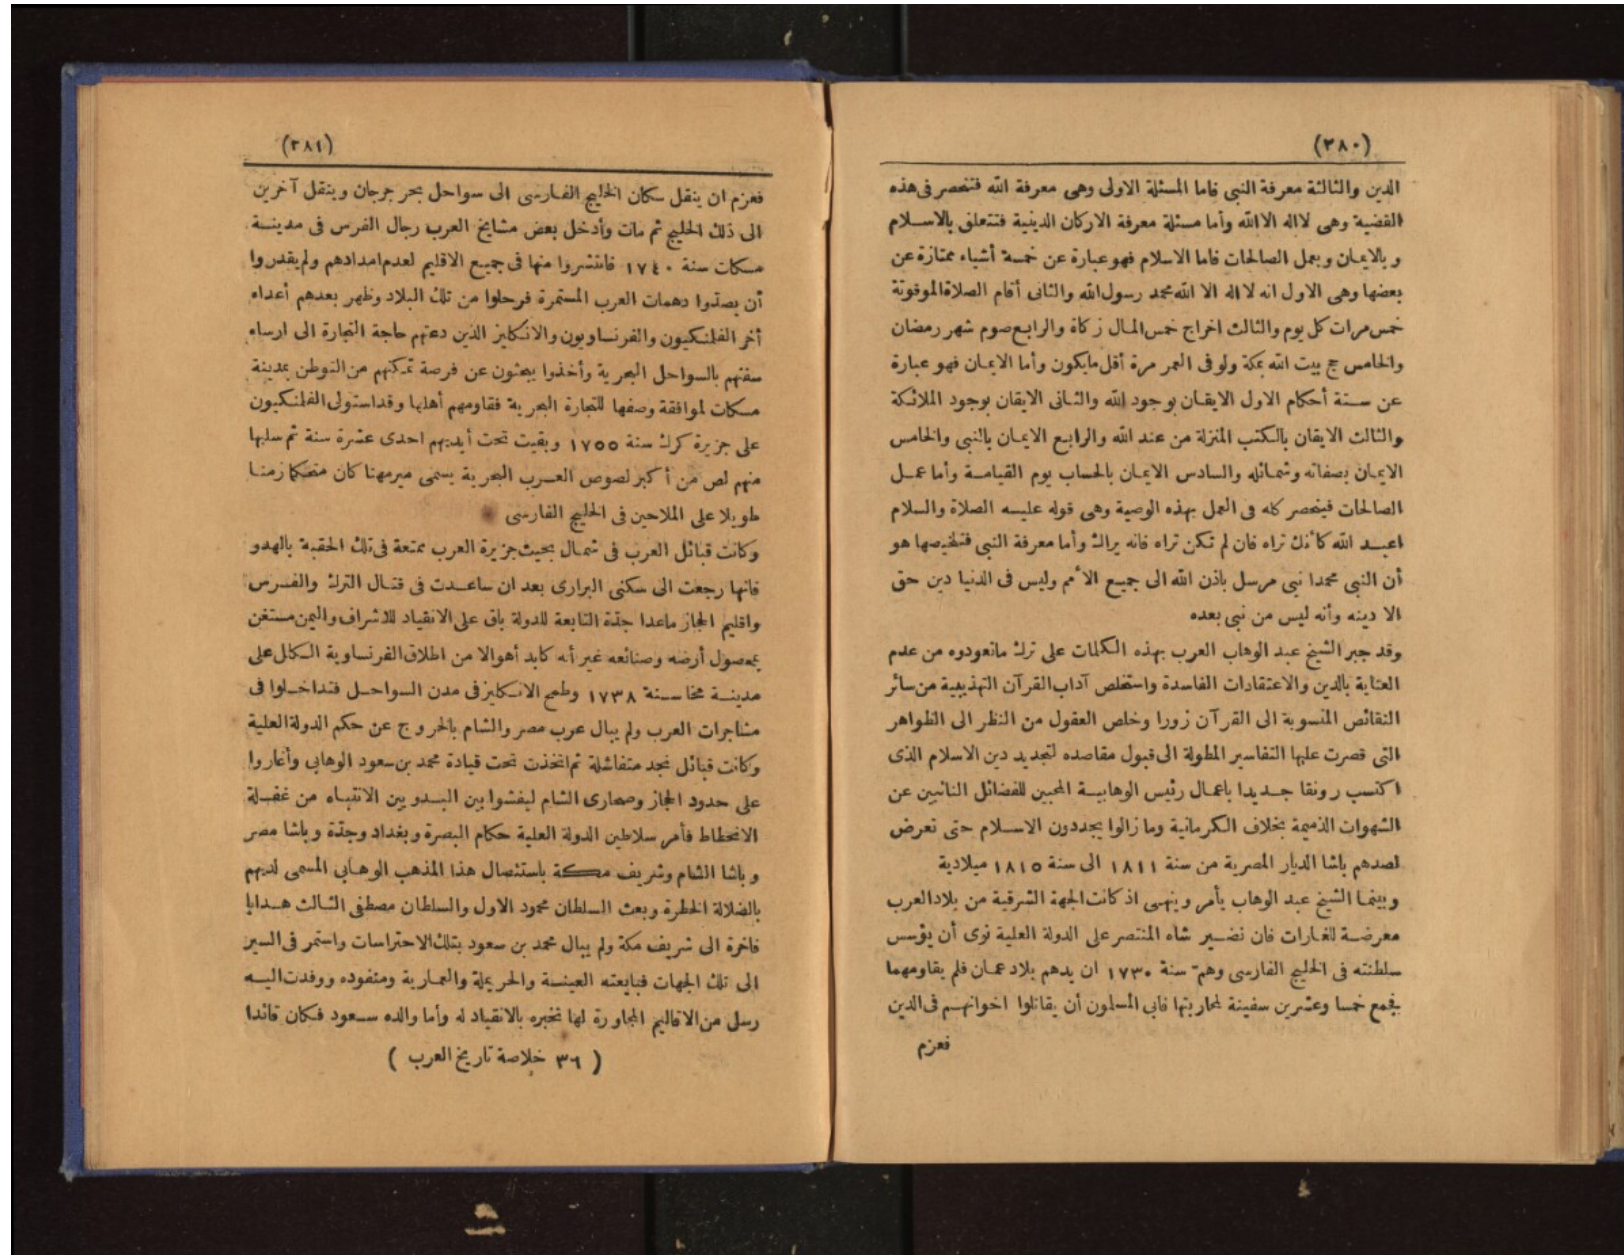 (٢٨٠)
الدين والثالثة معرفة النبي فاما المسئلة الاولى وهى معرفة الله فتنحصر فى هذه
القضية وهى لا اله الا الله وأما مسئلة معرفة الاركان الدينية فتتعلق بالاسلام
وبالايمان وبعمل الصالحات فاما الاسلام فهو عبارة عن خمسة أشياء ممتازة عن
بعضها وهى الاول انه لا اله الا الله محمد رسول الله والثانى أقام الصلاة الموقوتة
خمس مرات كل يوم والثالث اخراج خمس المال زكاة والرابع صوم شهر رمضان
والخامس حج بيت الله بمكة ولو فى العمر مرة أقل ما يكون وأما الايمان فهو عبارة
عن ستة أحكام الاول الايقان بوجود الله والثانى الايقان بوجود الملائكة
والثالث الايقان بالكتب المنزلة من عند الله والرابع الايمان بالنبي والخامس
الايمان بصفاته وشمائله والسادس الايمان بالحساب يوم القيامة وأما عمل
الصالحات فينحصر كله فى العمل بهذه الوصية وهى قوله عليه الصلاة والسلام
اعبد الله كأنك تراه فان لم تكن تراه فانه يراك وأما معرفة النبي فتلخيصها هو
أن النبي محمدا نبي مرسل باذن الله الى جميع الأمم وليس فى الدنيا دين حق
الا دينه وأنه ليس من نبي بعده
وقد جبر الشيخ عبد الوهاب العرب بهذه الكلمات على ترك ما تعودوه من عدم
العناية بالدين والاعتقادات الفاسدة واستخلص آداب القرآن التهذيبية من سائر
النقائص المنسوبة الى القرآن زورا وخلص العقول من النظر الى الظواهر
التى قصرت عليها التفاسير المطولة الى قبول مقاصده لتجديد دين الاسلام الذى
اكتسب رونقا جديدا باعمال رئيس الوهابية المحبين للفضائل النائبين عن
الشهوات الذميمة بخلاف الكرمانية وما زالوا يجددون الاسلام حتى تعرض
لصدهم باشا الديار المصرية من سنة ١٨١١ الى سنة ١٨١٥ ميلادية
وبينما الشيخ عبد الوهاب يأمر وينهى اذ كانت الجهة الشرقية من بلاد العرب
معرضة للغارات فان نضير شاه المنتصر على الدولة العلية نوى أن يؤسس
سلطنته فى الخليج الفارسى وهمّ سنة ١٧٣٠ ان يدهم بلاد عمان فلم يقاومهما
فجمع خمسا وعشرين سفينة لمحاربتها فابى المسلمون أن يقاتلوا اخوانهم فى الدين
فعزم
(٢٨١)
فعزم ان ينقل سكان الخليج الفارسى الى سواحل بحر جرجان وينقل آخرين
الى ذلك الخليج ثم مات وأدخل بعض مشايخ العرب رجال الفرس فى مدينة
مسكات سنة ١٧٤٠ فانتشروا منها فى جميع الاقليم لعدم امدادهم ولم يقدروا
أن يصدّوا دهمات العرب المستمرة فرحلوا من تلك البلاد وظهر بعدهم أعداء
أخر الفلمنكيون والفرنساويون والانكليز الذين دعتهم حاجة التجارة الى ارساء
سفنهم بالسواحل البحرية وأخذوا يبحثون عن فرصة تمكنهم من التوطن بمدينة
مسكات لموافقة وصفها للتجارة البحرية فقاومهم أهلها وقد استولى الفلمنكيون
على جزيرة كرك سنة ١٧٥٥ وبقيت تحت أيديهم احدى عشرة سنة ثم سلبها
منهم لص من أكبر لصوص العرب البحرية يسمى ميرمهنا كان متحكما زمنا
طويلا على الملاحين فى الخليج الفارسى
وكانت قبائل العرب فى شمال بحيث جزيرة العرب ممتعة فى تلك الحقبة بالهدو
فانها رجعت الى سكنى البرارى بعد ان ساعدت فى قتال الترك والفرس
واقليم الحجاز ماعدا جدّة التابعة للدولة باق على الانقياد للاشراف واليمن مستغن
بمحصول أرضه وصنائعه غير أنه كابد أهوالا من اطلاق الفرنساوية الكلل على
مدينة مخا سنة ١٧٣٨ وطمع الانكليز فى مدن السواحل فتداخلوا فى
مشاجرات العرب ولم يبال عرب مصر والشام بالخروج عن حكم الدولة العلية
وكانت قبائل نجد متفاشلة ثم اتخذت تحت قيادة محمد بن سعود الوهابى وأغاروا
على حدود الحجاز وصحارى الشام ليفشوا بين البدو بين الانتباه من غفلة
الانحطاط فأمر سلاطين الدولة العلية حكام البصرة وبغداد وجدّة وباشا مصر
وباشا الشام وشريف مكة باستئصال هذا المذهب الوهابى المسمى لديهم
بالضلالة الخطرة وبعث السلطان محمود الاول والسلطان مصطفى الثالث هدايا
فاخرة الى شريف مكة ولم يبال محمد بن سعود بتلك الاحتراسات واستمر فى السير
الى تلك الجهات فبايعته العينسة والحريملة والعمارية ومنفوده ووفدت اليه
رسل من الاقاليم المجاورة لها تخبره بالانقياد له وأما والده سعود فكان قائدا
( ٣٦ خلاصة تاريخ العرب )